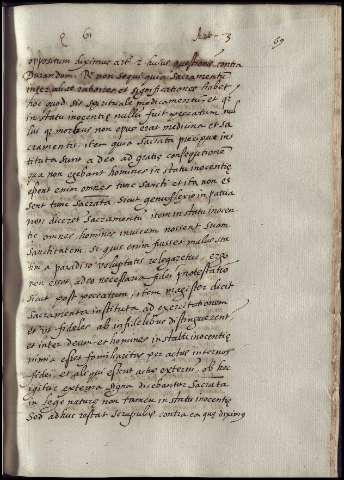 q 61 Art. 3 69
oppositum diximus art. 2 huius questionis contra
Durandum. R. non sequi quia Sacramentū
inter alias rationes et significationes habet
hoc quod sit spirituale medicamentū, et qª
in statu inocentię nulla fuit peccatum nul
lus qª morbus non opus erat medicina et sa
cramentis. item quia Sacrata precipue ins
tituta sunt a deo ad gratię consequutionē
qua non egebant homines in statu inocentię
enim omnes tunc Sancti et ita non es
sent tunc Sacrata sicut genuflexio in patria
non diceret Sacramentū. item in statu inocen
tię omnes homines invicem nossent suam
Sanctitatem si quis enim fuisset malus sta
tim a paradiso voluptatis relegaretur ergo
non esset adeo necessaria fidei protestatio
sicut post peccatum. item magister dicit
Sacramenta instituta ad exercitationem
et ut fideles ab infidelibus distinguerent
et inter deum et homines in statu inocentię
nimia esset familiaritas per actus internos
fidei, et aliqui essent actus externi. ob hec
igitur externa signa dicebantur Sacrata
in lege naturę non tamen in statu inocentię
Sed adhuc restat scrupulus contra ea quę diximꝰ